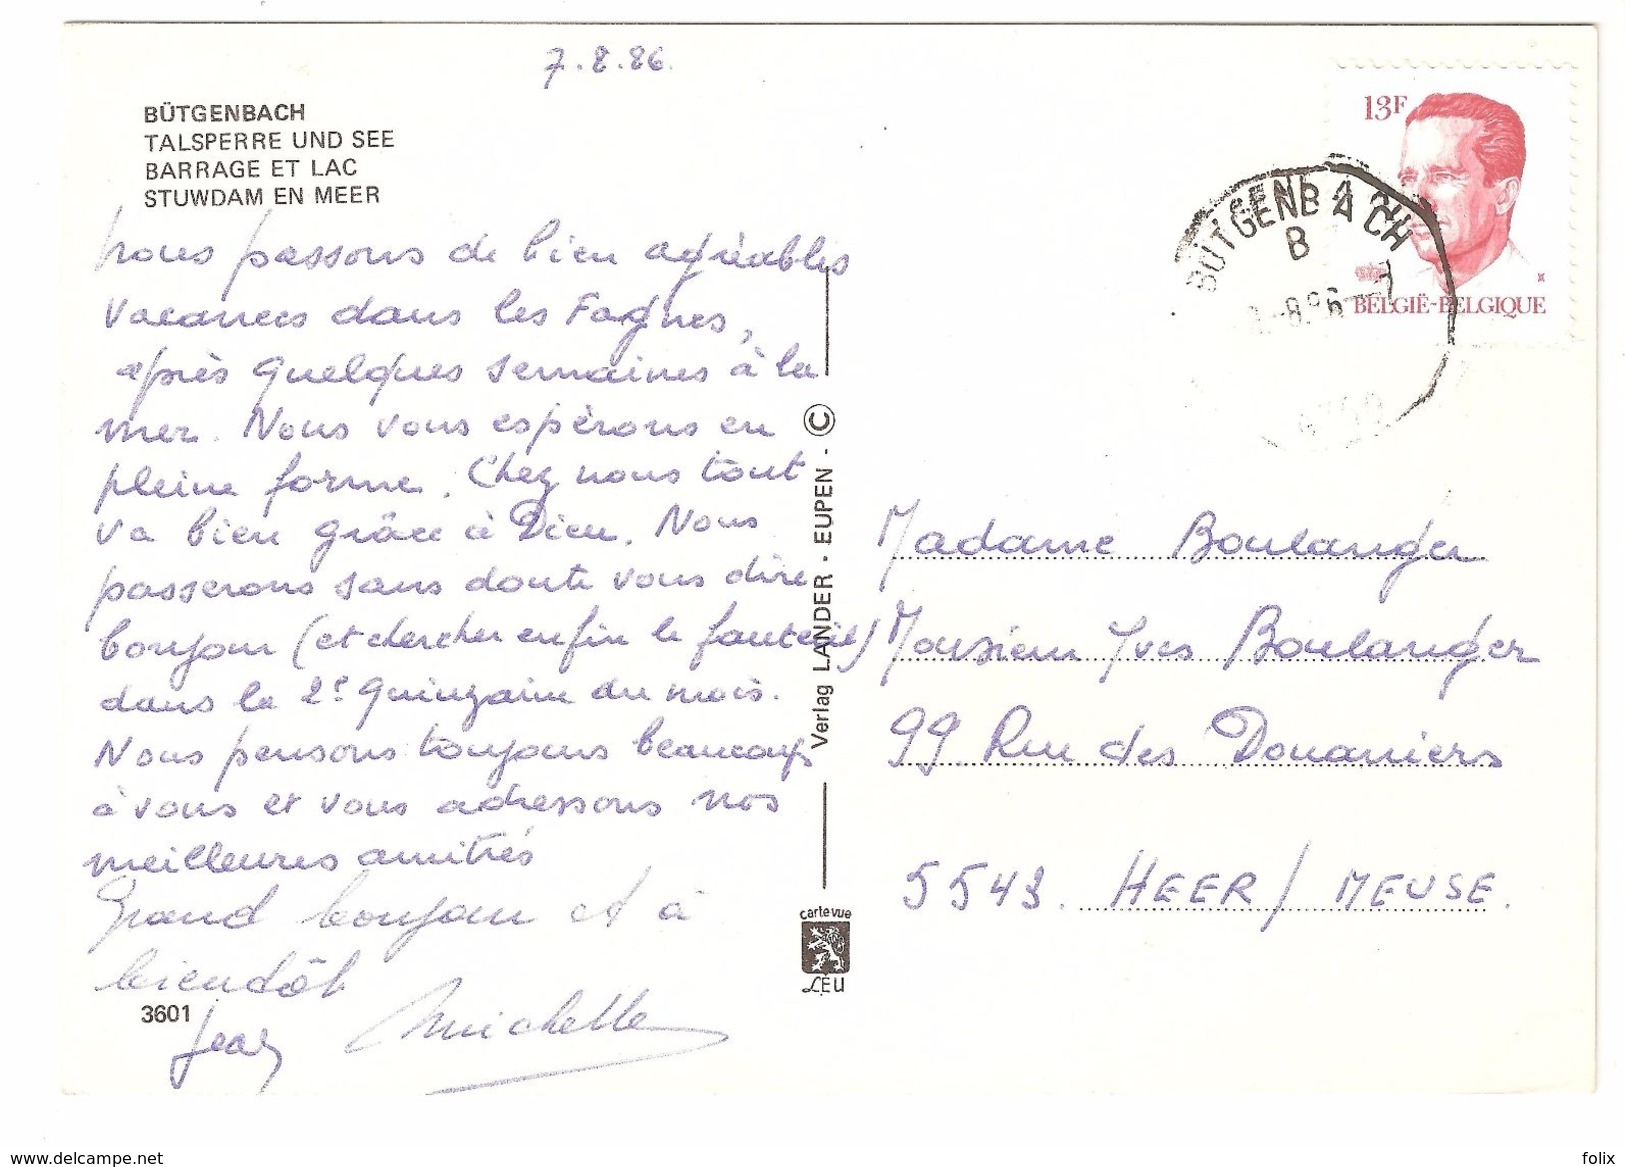 7.8.86.
BÜTGENBACH
TALSPERRE UND SEE
BARRAGE ET LAC
STUWDAM EN MEER
Nous passons de bien agréables
vacances dans les Fagnes,
après quelques semaines à la
mer. Nous vous espérons en
pleine forme. Chez nous tout
va bien grâce à Dieu. Nous
passerons sans doute vous dire
bonjour (et chercher enfin le fauteuil)
dans la 2e quinzaine du mois.
Nous pensons toujours beaucoup
à vous et vous adressons nos
meilleures amitiés
Grand bonjour et à
bientôt
Jean Michelle
3601
Verlag LANDER · EUPEN - ©
carte vue
LEU
13F
BELGIË-BELGIQUE
BÜTGENBACH
B
-8.86-7
4750
Madame Boulanger
Monsieur Yves Boulanger
99 Rue des Douaniers
5543. HEER / MEUSE.
www.delcampe.net
folix